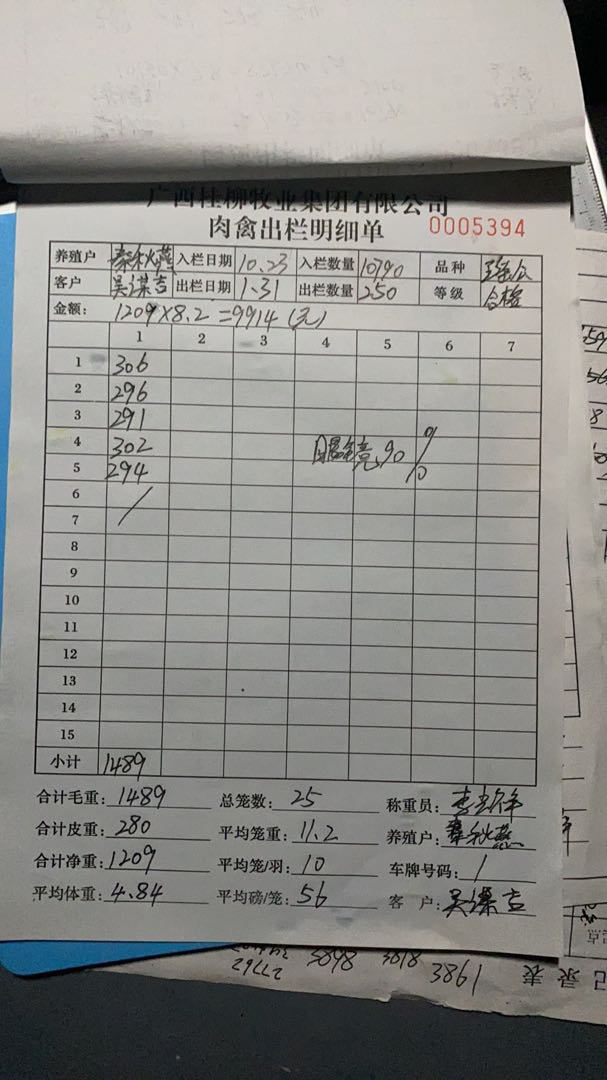 广西桂柳牧业集团有限公司
肉禽出栏明细单 0005394
养殖户 秦秋燕 入栏日期 10.23 入栏数量 10790 品种
客户 吴谋吉 出栏日期 1.31 出栏数量 250 等级 合格
金额: 1209×8.2=9914(元)
1 2 3 4 5 6 7
1 306
2 296
3 291
4 302 眼镜90%
5 294
6
7
8
9
10
11
12
13
14
15
小计 1489
合计毛重: 1489 总笼数: 25 称重员:
合计皮重: 280 平均笼重: 11.2 养殖户: 秦秋燕
合计净重: 1209 平均笼/羽: 10 车牌号码: /
平均体重: 4.84 平均磅/笼: 56 客 户: 吴谋吉
27762 3898 3818 3861 记录表